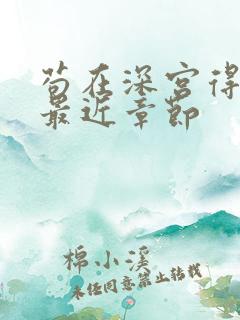 苟在深宫得
最近章节
棉小溪
未经同意禁止转载